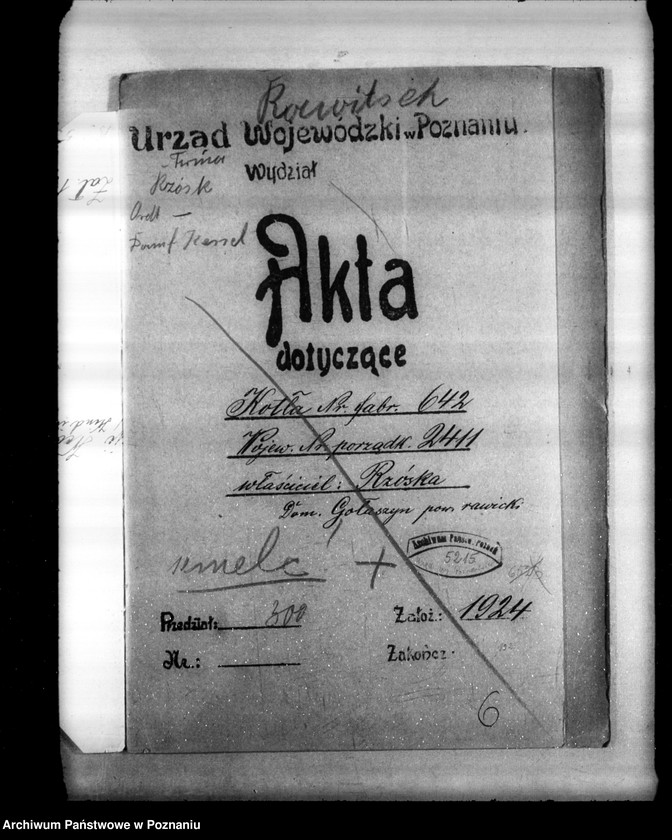 Rawitsch
Urząd Wojewódzki w Poznaniu.
Wydział
Rzósk
Akta
dotyczące
Kotła Nr. fabr. 642
Wojew. Nr. porządk. 2411
właściciel: Rzóska
Dom. Gołaszyn pow. rawicki
+
Archiwum Państw. Poznań
5215
Przedział: 300
Założ.: 1924
Nr.:
Zakończ.
6
Archiwum Państwowe w Poznaniu